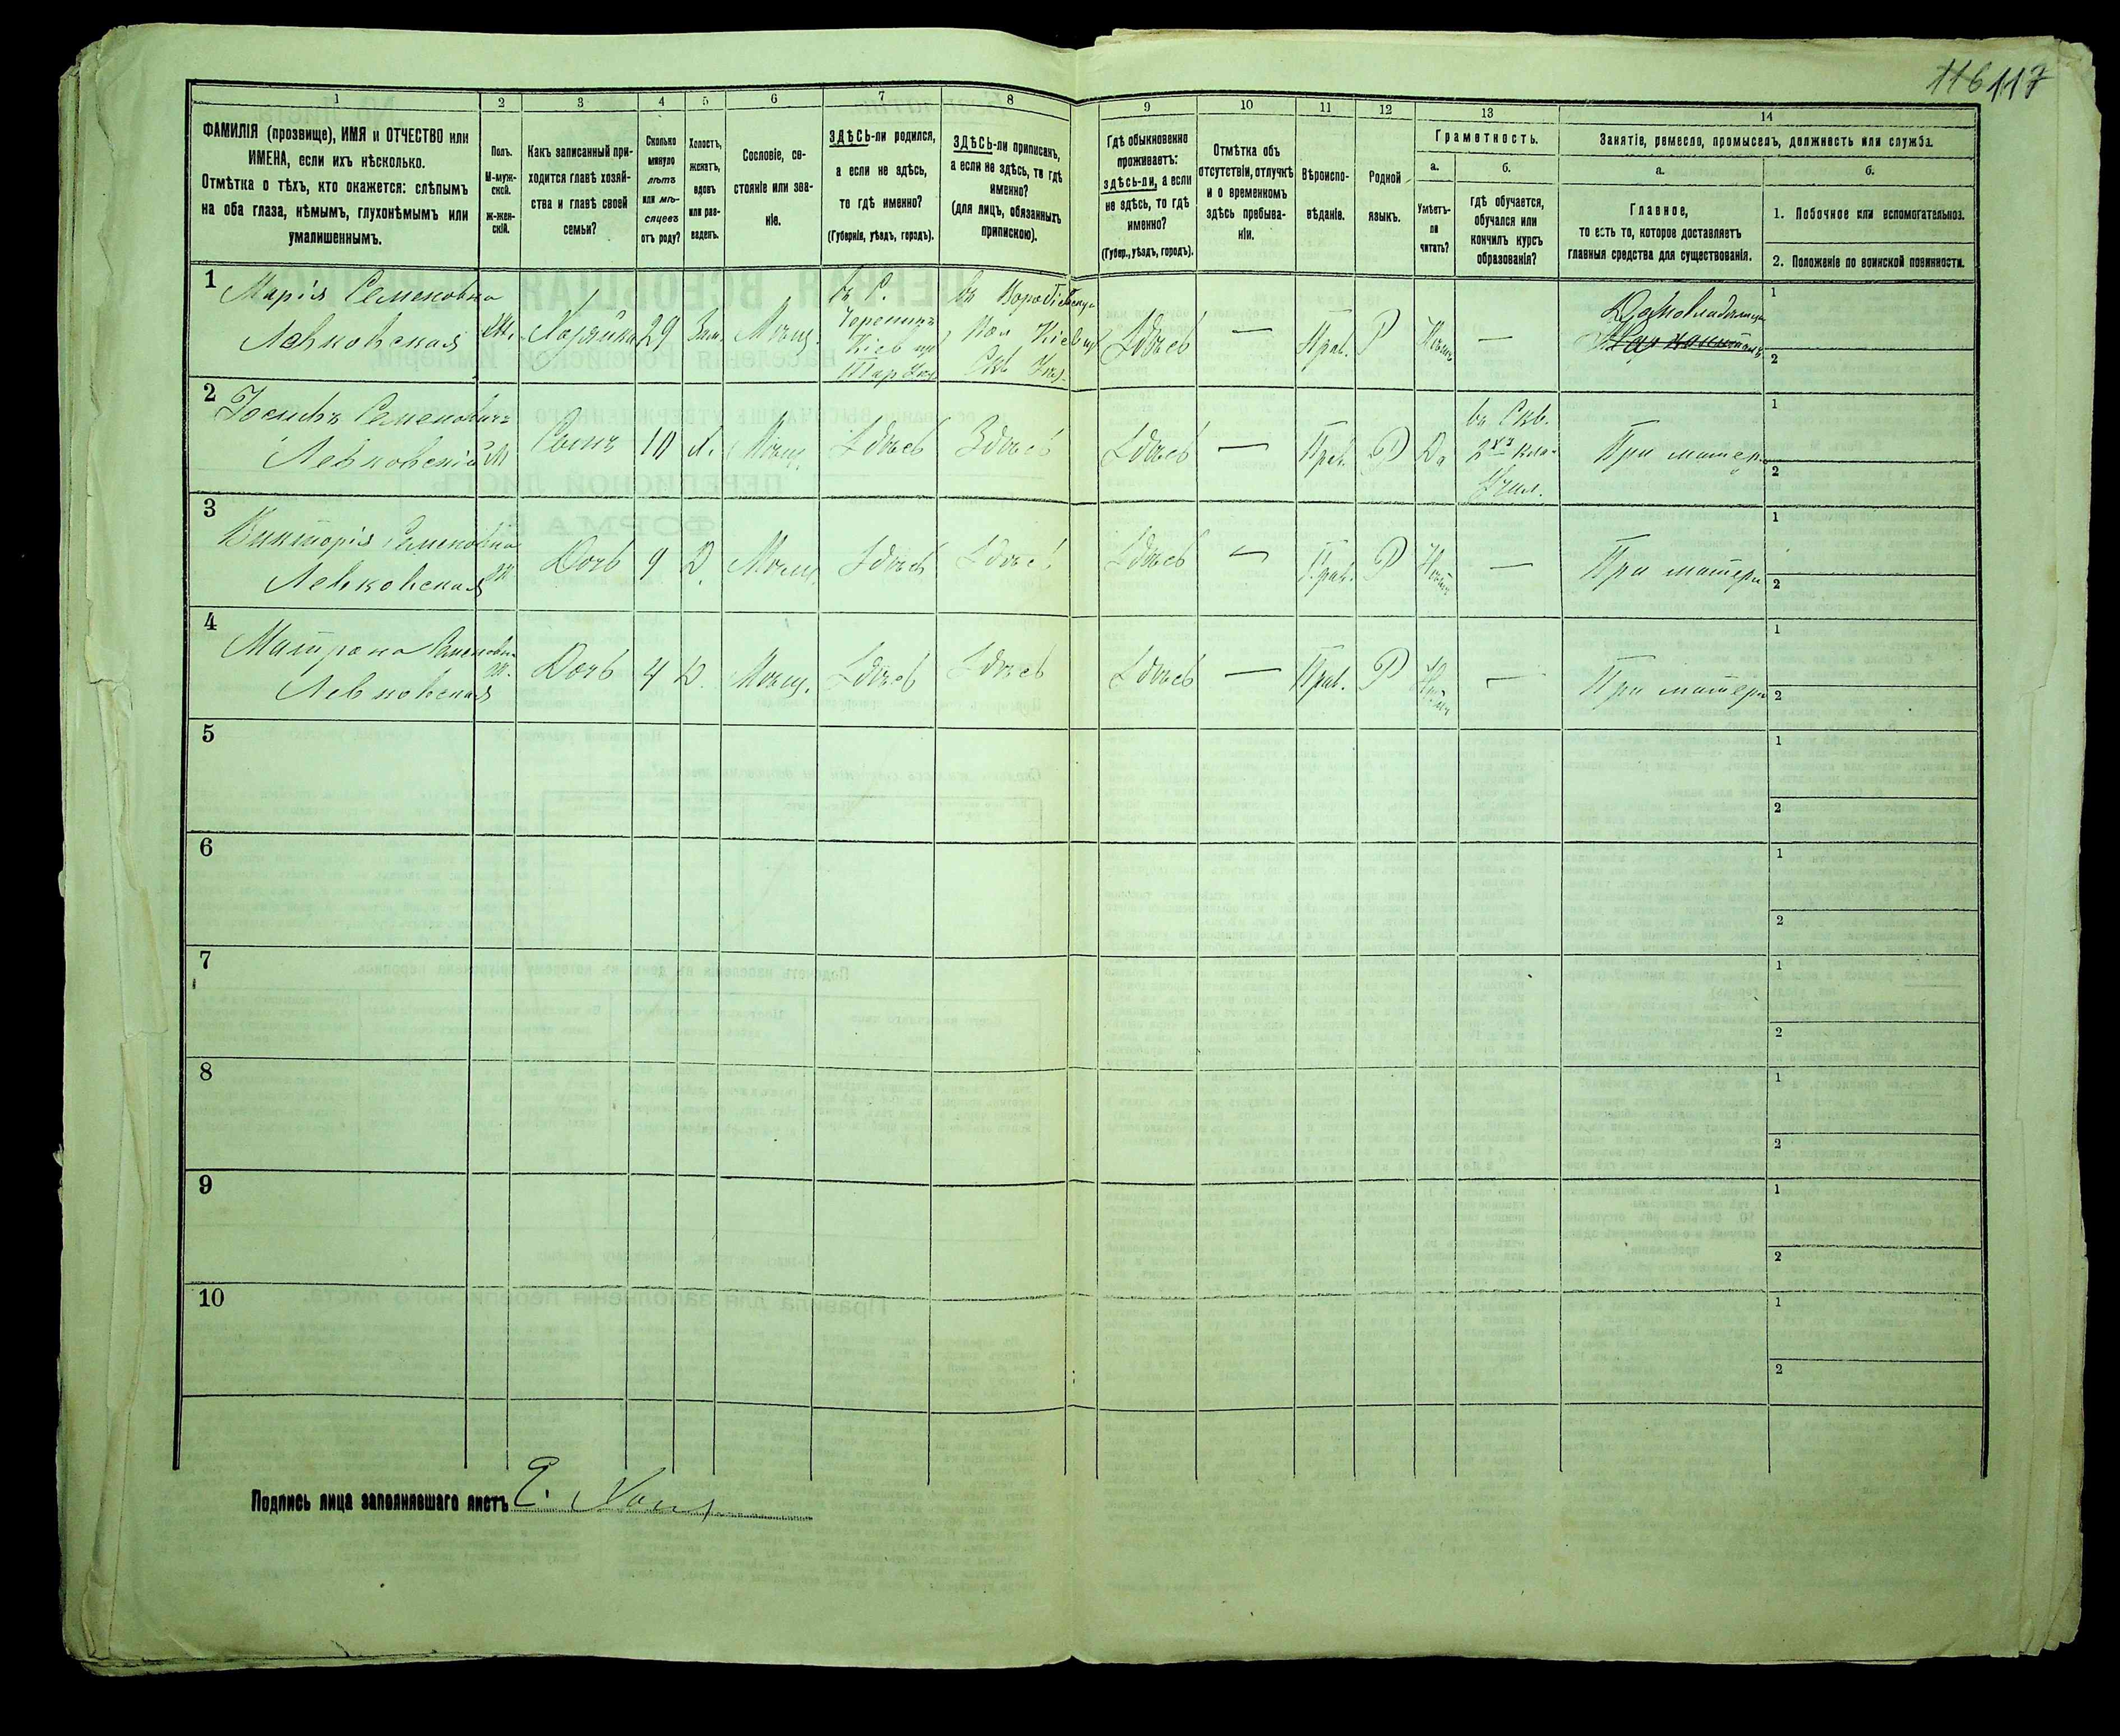 116 117
1 2 3 4 5 6 7 8 9 10 11 12 13 14
ФАМИЛІЯ (прозвище), ИМЯ и ОТЧЕСТВО или
ИМЕНА, если ихъ нѣсколько.
Отмѣтка о тѣхъ, кто окажется: слѣпымъ
на оба глаза, нѣмымъ, глухонѣмымъ или
умалишеннымъ.
Полъ.
М-муж-
ской.
ж-жен-
скій.
Какъ записанный при-
ходится главѣ хозяй-
ства и главѣ своей
семьи?
Сколько
минуло
лѣтъ
или мѣ-
сяцевъ
отъ роду?
Холостъ,
женатъ,
вдовъ
или раз-
веденъ.
Сословіе, со-
стояніе или зва-
ніе.
ЗДѢСЬ-ли родился,
а если не здѣсь,
то гдѣ именно?
(Губернія, уѣздъ, городъ).
ЗДѢСЬ-ли приписанъ,
а если не здѣсь, то гдѣ
именно?
(для лицъ, обязанныхъ
припискою).
Гдѣ обыкновенно
проживаетъ:
здѣсь-ли, а если
не здѣсь, то гдѣ
именно?
(Губер., уѣздъ, городъ).
Отмѣтка объ
отсутствіи, отлучкѣ
и о временномъ
здѣсь пребыва-
ніи.
Вѣроиспо-
вѣданіе.
Родной
языкъ.
Грамотность.
а.
Умѣетъ-
ли
читать?
б.
гдѣ обучается,
обучался или
кончилъ курсъ
образованія?
Занятіе, ремесло, промыселъ, должность или служба.
а.
Главное,
то есть то, которое доставляетъ
главныя средства для существованія.
б.
1. Побочное или вспомогательное.
2. Положеніе по воинской повинности.
1
Марія Семеновна
Левковская
Ж.
Хозяйка
29
Зам.
Мѣщ.
въ С.
Черепинъ
Кіев. губ.
Тар. Уѣз.
въ
Кіев. губ.
Скв. Уѣз.
Здѣсь
—
Прав.
Р
Нѣтъ
—
Домовладѣлица
1
2
2
Іосифъ Семеновичъ
Левковскій
М
Сынъ
10
Х.
Мѣщ.
Здѣсь
Здѣсь
Здѣсь
—
Прав.
Р
Да
въ Скв.
2хъ кла.
Учил.
При матер.
1
2
3
Викторія Семеновна
Левковская
Ж
Дочь
9
Д.
Мѣщ.
Здѣсь
Здѣсь
Здѣсь
—
Прав.
Р
Нѣтъ
—
При матери
1
2
4
Матрона Семеновна
Левковская
Ж.
Дочь
4
Д.
Мѣщ.
Здѣсь
Здѣсь
Здѣсь
—
Прав.
Р
Нѣтъ
—
При матери
1
2
5
1
2
6
1
2
7
1
2
8
1
2
9
1
2
10
1
2
Подпись лица заполнявшаго листъ